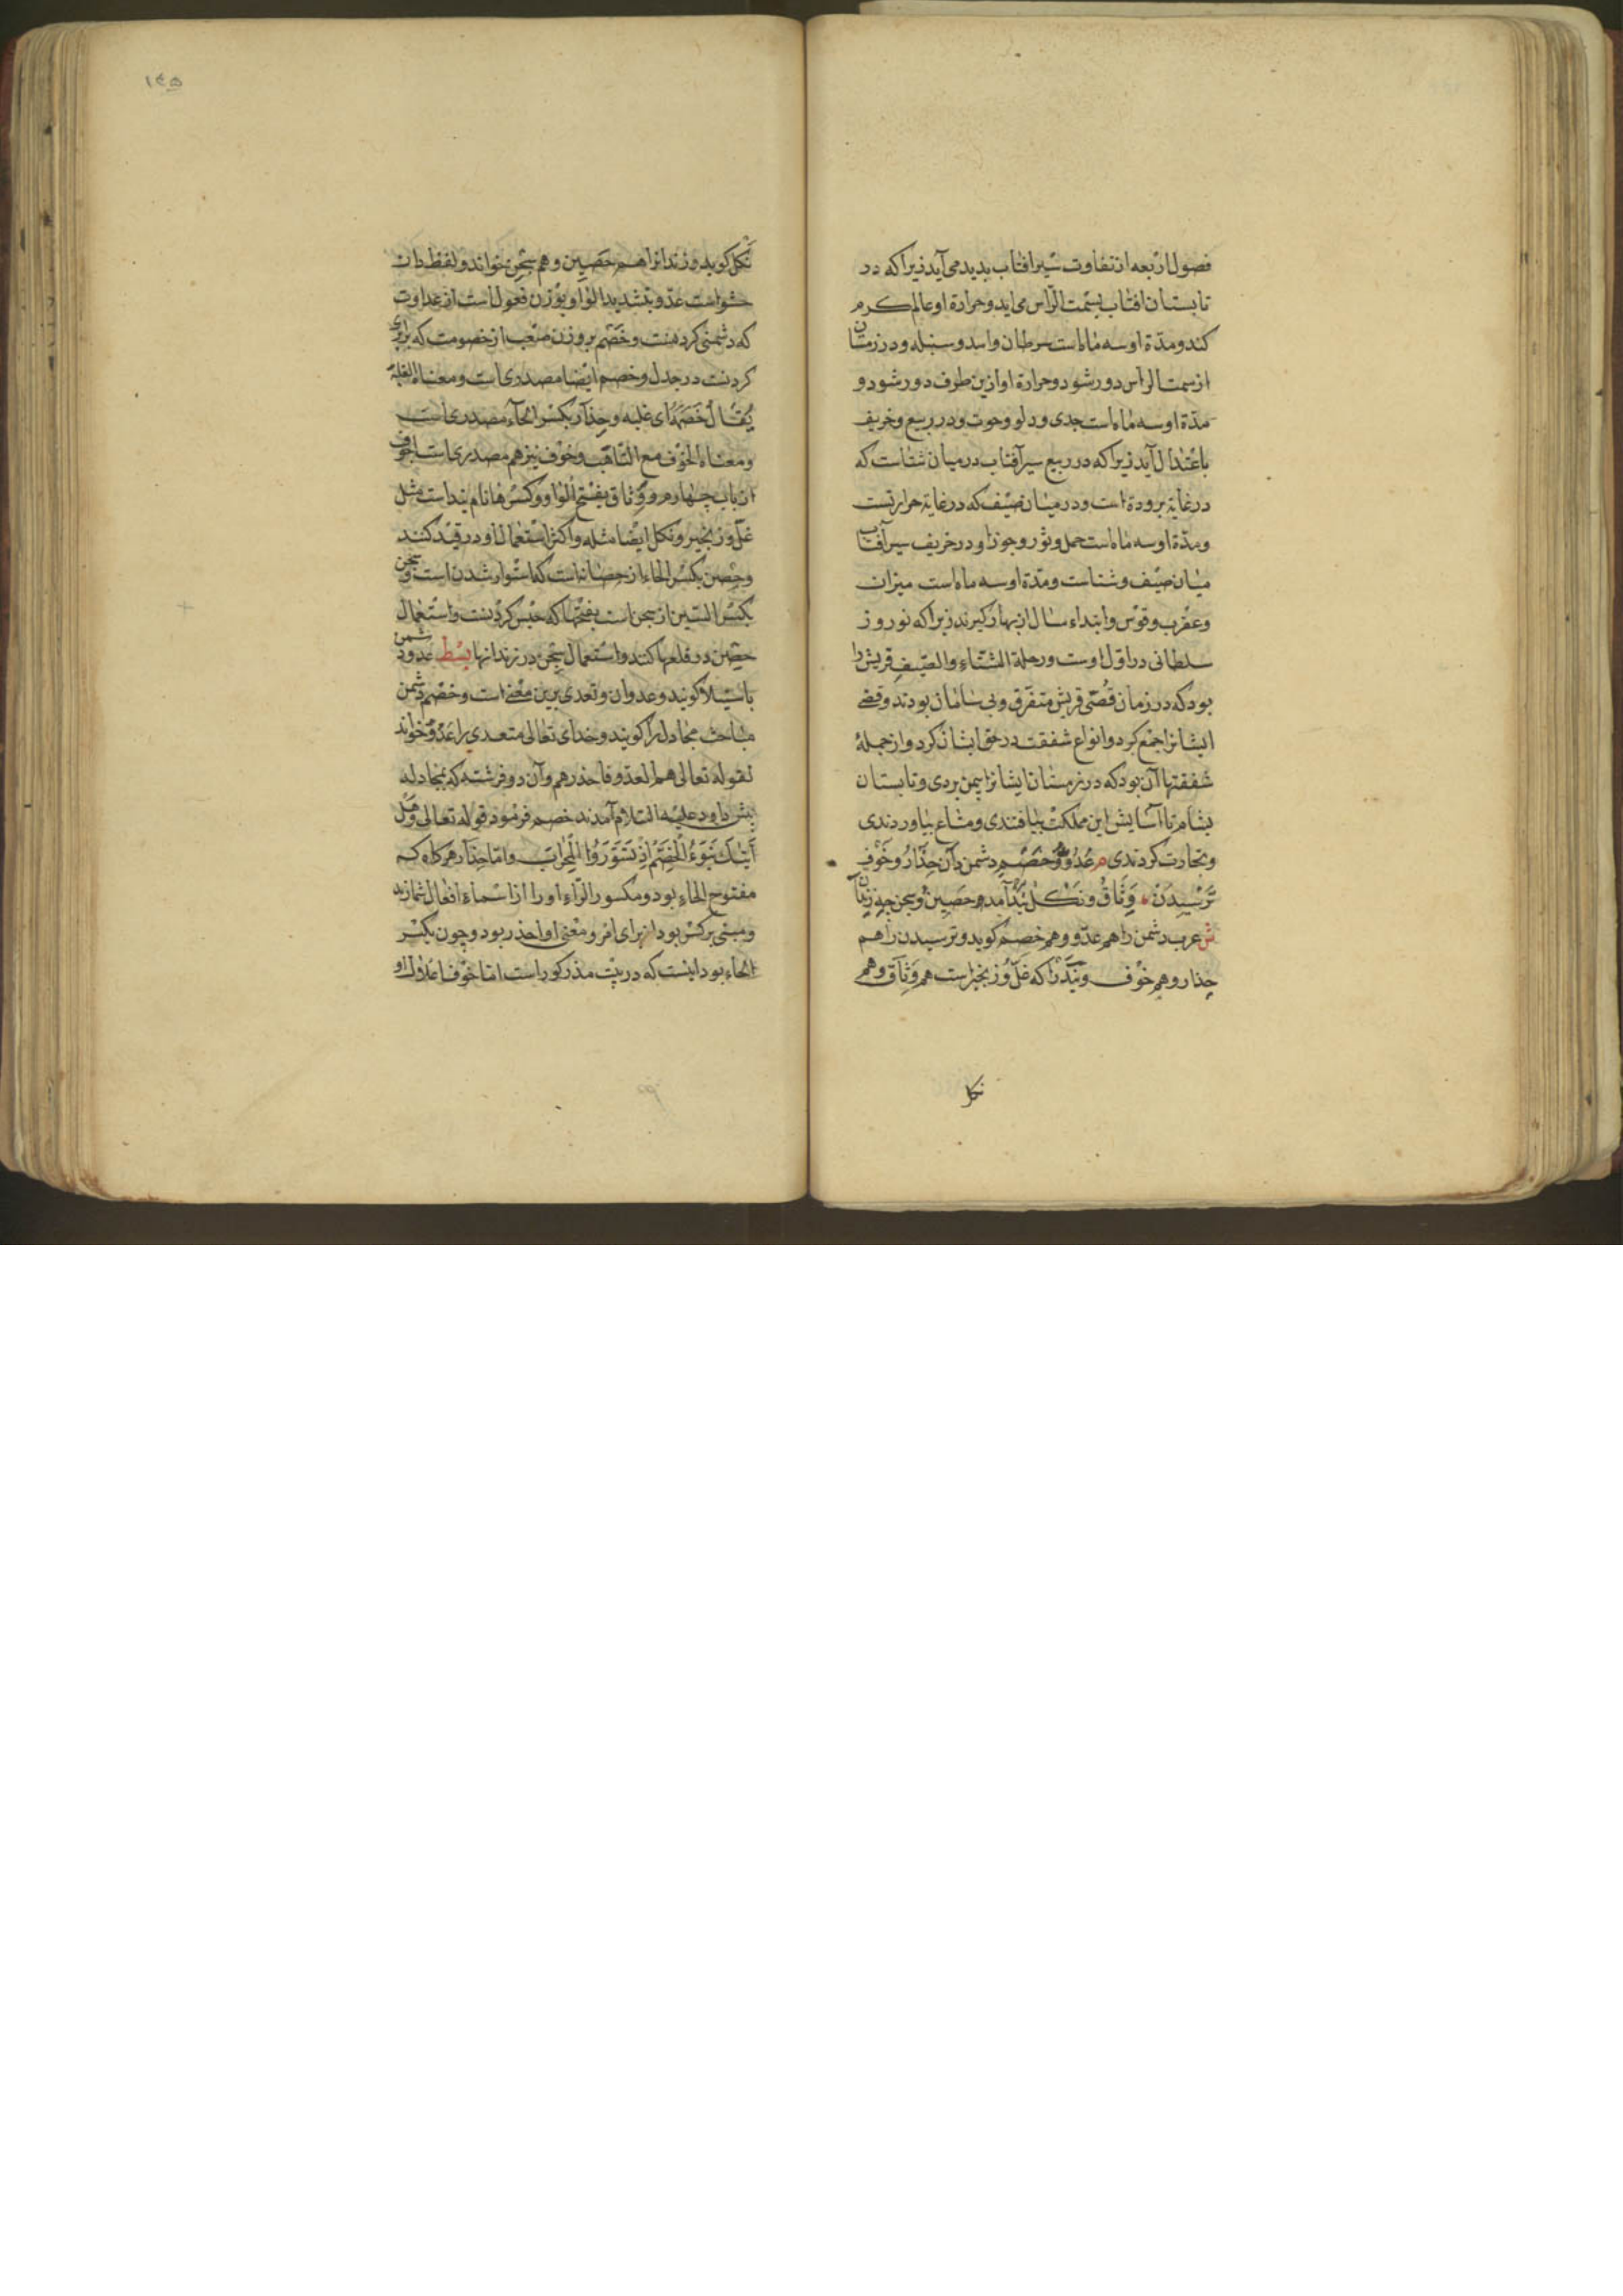 فصول اربعه از تفاوت سیر افتاب پدید می آید زیرا که در
تابستان افتاب بسمت الرّاس می اید و حرارة او عالم کرم
کند و مدّة او سه ماه است سرطان و اسد و سنبله و در زمستان
از سمت الراس دور شود و حرارة او ازین طرف دور شود و
مدّة او سه ماه است جدی و دلو و حوت و در ربیع و خریف
باعتدال آید زیرا که در ربیع سیر آفتاب در میان شتاست که
در غایة برودة است و در میان صیف که در غایة حرارتست
و مدّة او سه ماه است حمل و ثور و جوزا و در خریف سیر آفتاب
میان صیف و شتاست و مدّة او سه ماه است میزان
و عقرب و قوس و ابتداء سال از بهار کیرند زیرا که نوروز
سلطانی در اوّل اوست و رحلة الشتاء و الصّیف قریش را
بود که در زمان قُصّی قریش متفرّق و بی سامان بودند و قصّی
ایشانرا جمع کرد و انواع شفقت در حق ایشان کرد و از جملهٔ
شفقتها آن بود که در زمستان ایشانرا بیمن بردی و تابستان
بشام تا آسایش این مملکت بیافتندی و متاع بیاوردندی
و تجارت کردندی م عَدُوّ و خَصْم دشمن دان حِذَارُ و خَوْف
تَرْسِیدَن وَثَاقُ و نَکْلُ بَنْد آمد حَصِین و سجن چه زندان
ش عرب دشمن را هم عدّو و هم خصم کوید و ترسیدن را هم
حِذار و هم خوْف و بَنْد را که غلّ و زنجیر است هم وَثَاق و هم
نکل
۱۴۵
نَکْل کوید و زندانرا هم حَصِین و هم سِجْن خواند و لفظ دان
حشو است عدّو بتشدید الواو بوزن فعول است از عداوت
که دشمنی کردنست و خَصْم بر وزن صَعْب از خصومت که برابری
کردنست در جدل و خصم ایضا مصدری است و معناه الغلبة
یُقَالُ خَصَمَهُ ای غلبه و حِذار بکسر الحاء مصدری است
و معناه الخوف مع التّاهّب و خوْف نیز هم مصدری است خوف
از باب چهارم و وَثاق بفتح الواو و کسرها نام بند است مثل
غلّ و زنجیر و نکل ایضا مثله و اکثر استعمال او در قید کنند
و حِصْن بکسر الحاء از حصانه است که استوار شدن است و سجن
بکسر السّین از سجن است بفتحها که حبْس کردنست و استعمال
حصین در قلعها کنند و استعمال سِجْن در زندانها بسط عدو دشمن
باستیلا کویند و عدوان و تعدی برین معنی است و خصْم دشمن
مباحث مجادل را کویند و خدای تعالی متعدی را عَدُوّ خواند
لقوله تعالی هم العدّو فاحذرهم و آن دو فرشته که بمجادله
پیش داود علیه السّلام آمدند خصم فرمود قوله تعالی وَهَلْ
أَتَیٰکَ نَبَؤُا الْخَصْمِ إِذْ تَسَوَّرُوا الْمِحْرَابَ و امّا حِذار هرکاه که
مفتوح الحاء بود و مکسور الرّاء او را از اسماء افعال شمارند
و مبنی بر کسر بود از برای امر و معنی او احذر بود و چون بکسْر
الحاء بود اینست که در بیت مذکور است امّا خوْف